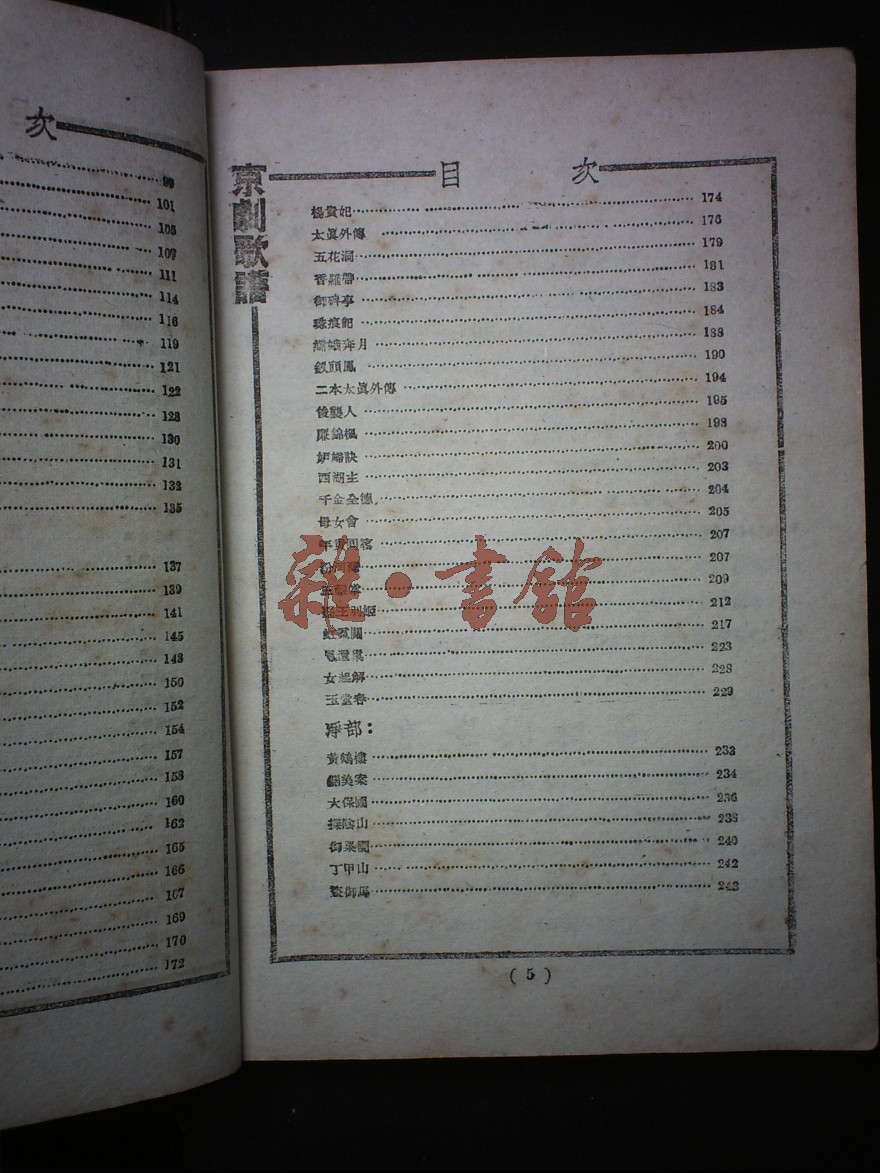 次
99
101
105
107
111
114
116
119
121
122
128
130
131
132
135
137
139
141
145
148
150
152
154
157
158
160
162
165
166
167
169
170
172
京劇歌譜
目 次
楊貴妃 174
太眞外傳 176
五花洞 179
香羅帶 181
御碑亭 183
珠痕記 184
嫦娥奔月 188
釵頭鳳 190
二本太眞外傳 194
後襲人 195
廉錦楓 198
妒婦訣 200
西湖主 203
千金全德 204
母女會 205
回窰 207
汾河灣 207
209
212
虹霓關 217
223
女起解 228
玉堂春 229
淨部：
黃鶴樓 233
鍘美案 234
大保國 236
探陰山 238
御果園 240
丁甲山 242
盜御馬 243
( 5 )
雜·書館